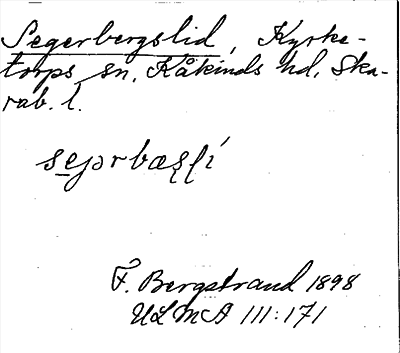 Segerbergslid, Kyrke-
torps sn, Kåkinds hd, Ska-
rab. l.
F. Bergstrand 1898
ULMA 111:171